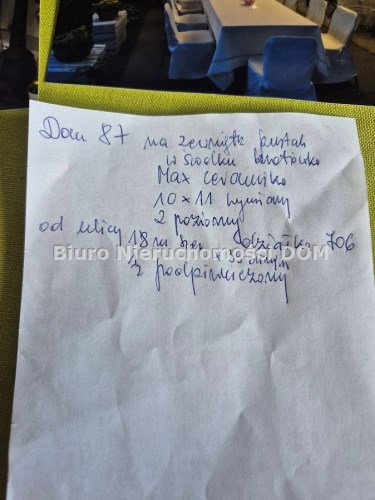 Dom 87 na zewnątrz pustak
w środku
Max ceramika
10 x 11 wymiary
2 poziomy
od ulicy 18 m działka 706
Biuro Nieruchomości DOM
½ podpiwniczony